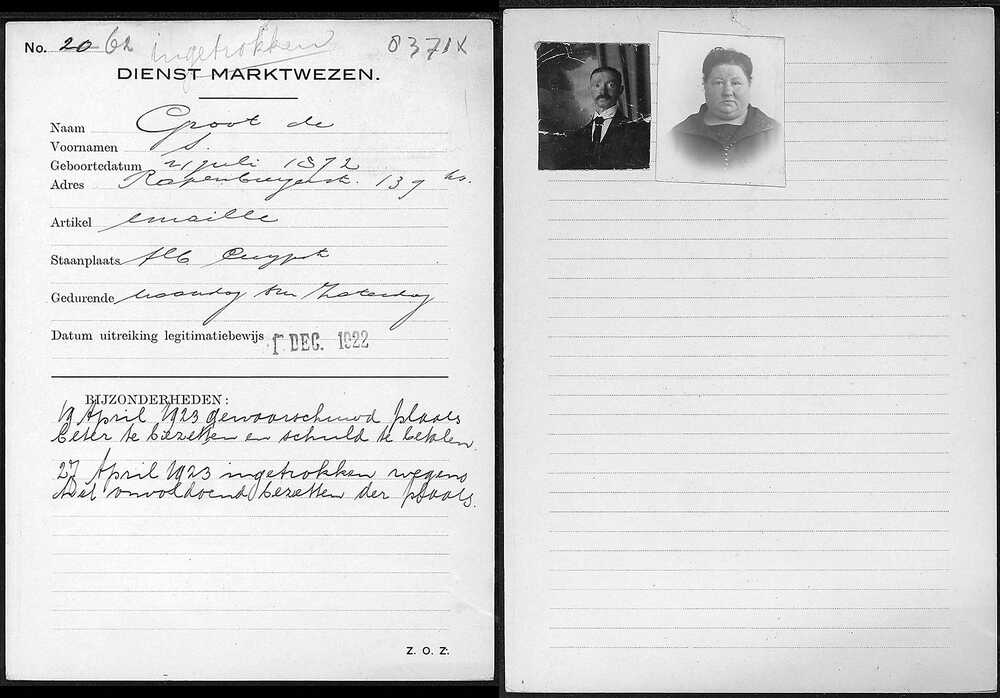 No. 20 62 ingetrokken 0371X
DIENST MARKTWEZEN.
Naam Groot de
Voornamen S.
Geboortedatum 21 juli 1872
Adres Rapenburgerst. 139 hs.
Artikel emaille
Staanplaats Alb Cuypst
Gedurende maandag t/m Zaterdag
Datum uitreiking legitimatiebewijs 1 DEC. 1922
BIJZONDERHEDEN:
19 April 1923 gewaarschuwd plaats
beter te bezetten en schuld te betalen.
27 April 1923 ingetrokken wegens
het onvoldoend bezetten der plaats.
Z. O. Z.